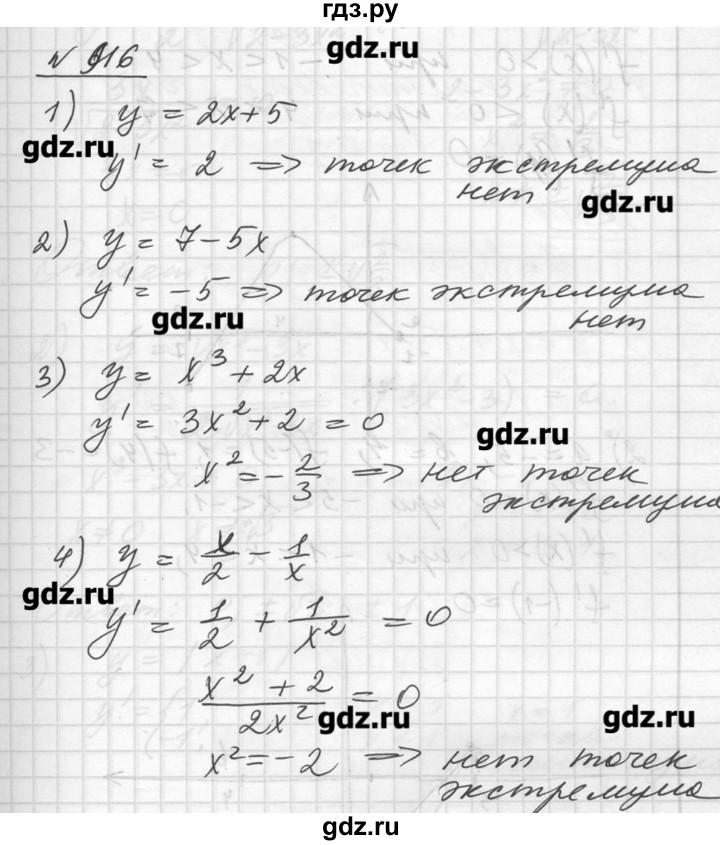 гдз.ру
gdz.ru
№ 916
1) y = 2x+5
gdz.ru
y' = 2 => точек экстремума
нет
gdz.ru
2) y = 7-5x
y' = -5 => точек экстремума
нет
gdz.ru
3) y = x³ + 2x
y' = 3x² + 2 = 0
gdz.ru
x² = - 2/3 => нет точек
экстремума
4) y = x/2 - 1/x
gdz.ru
y' = 1/2 + 1/x² = 0
(x² + 2)/(2x²) = 0
gdz.ru gdz.ru
x² = -2 => нет точек
экстремума
gdz.ru